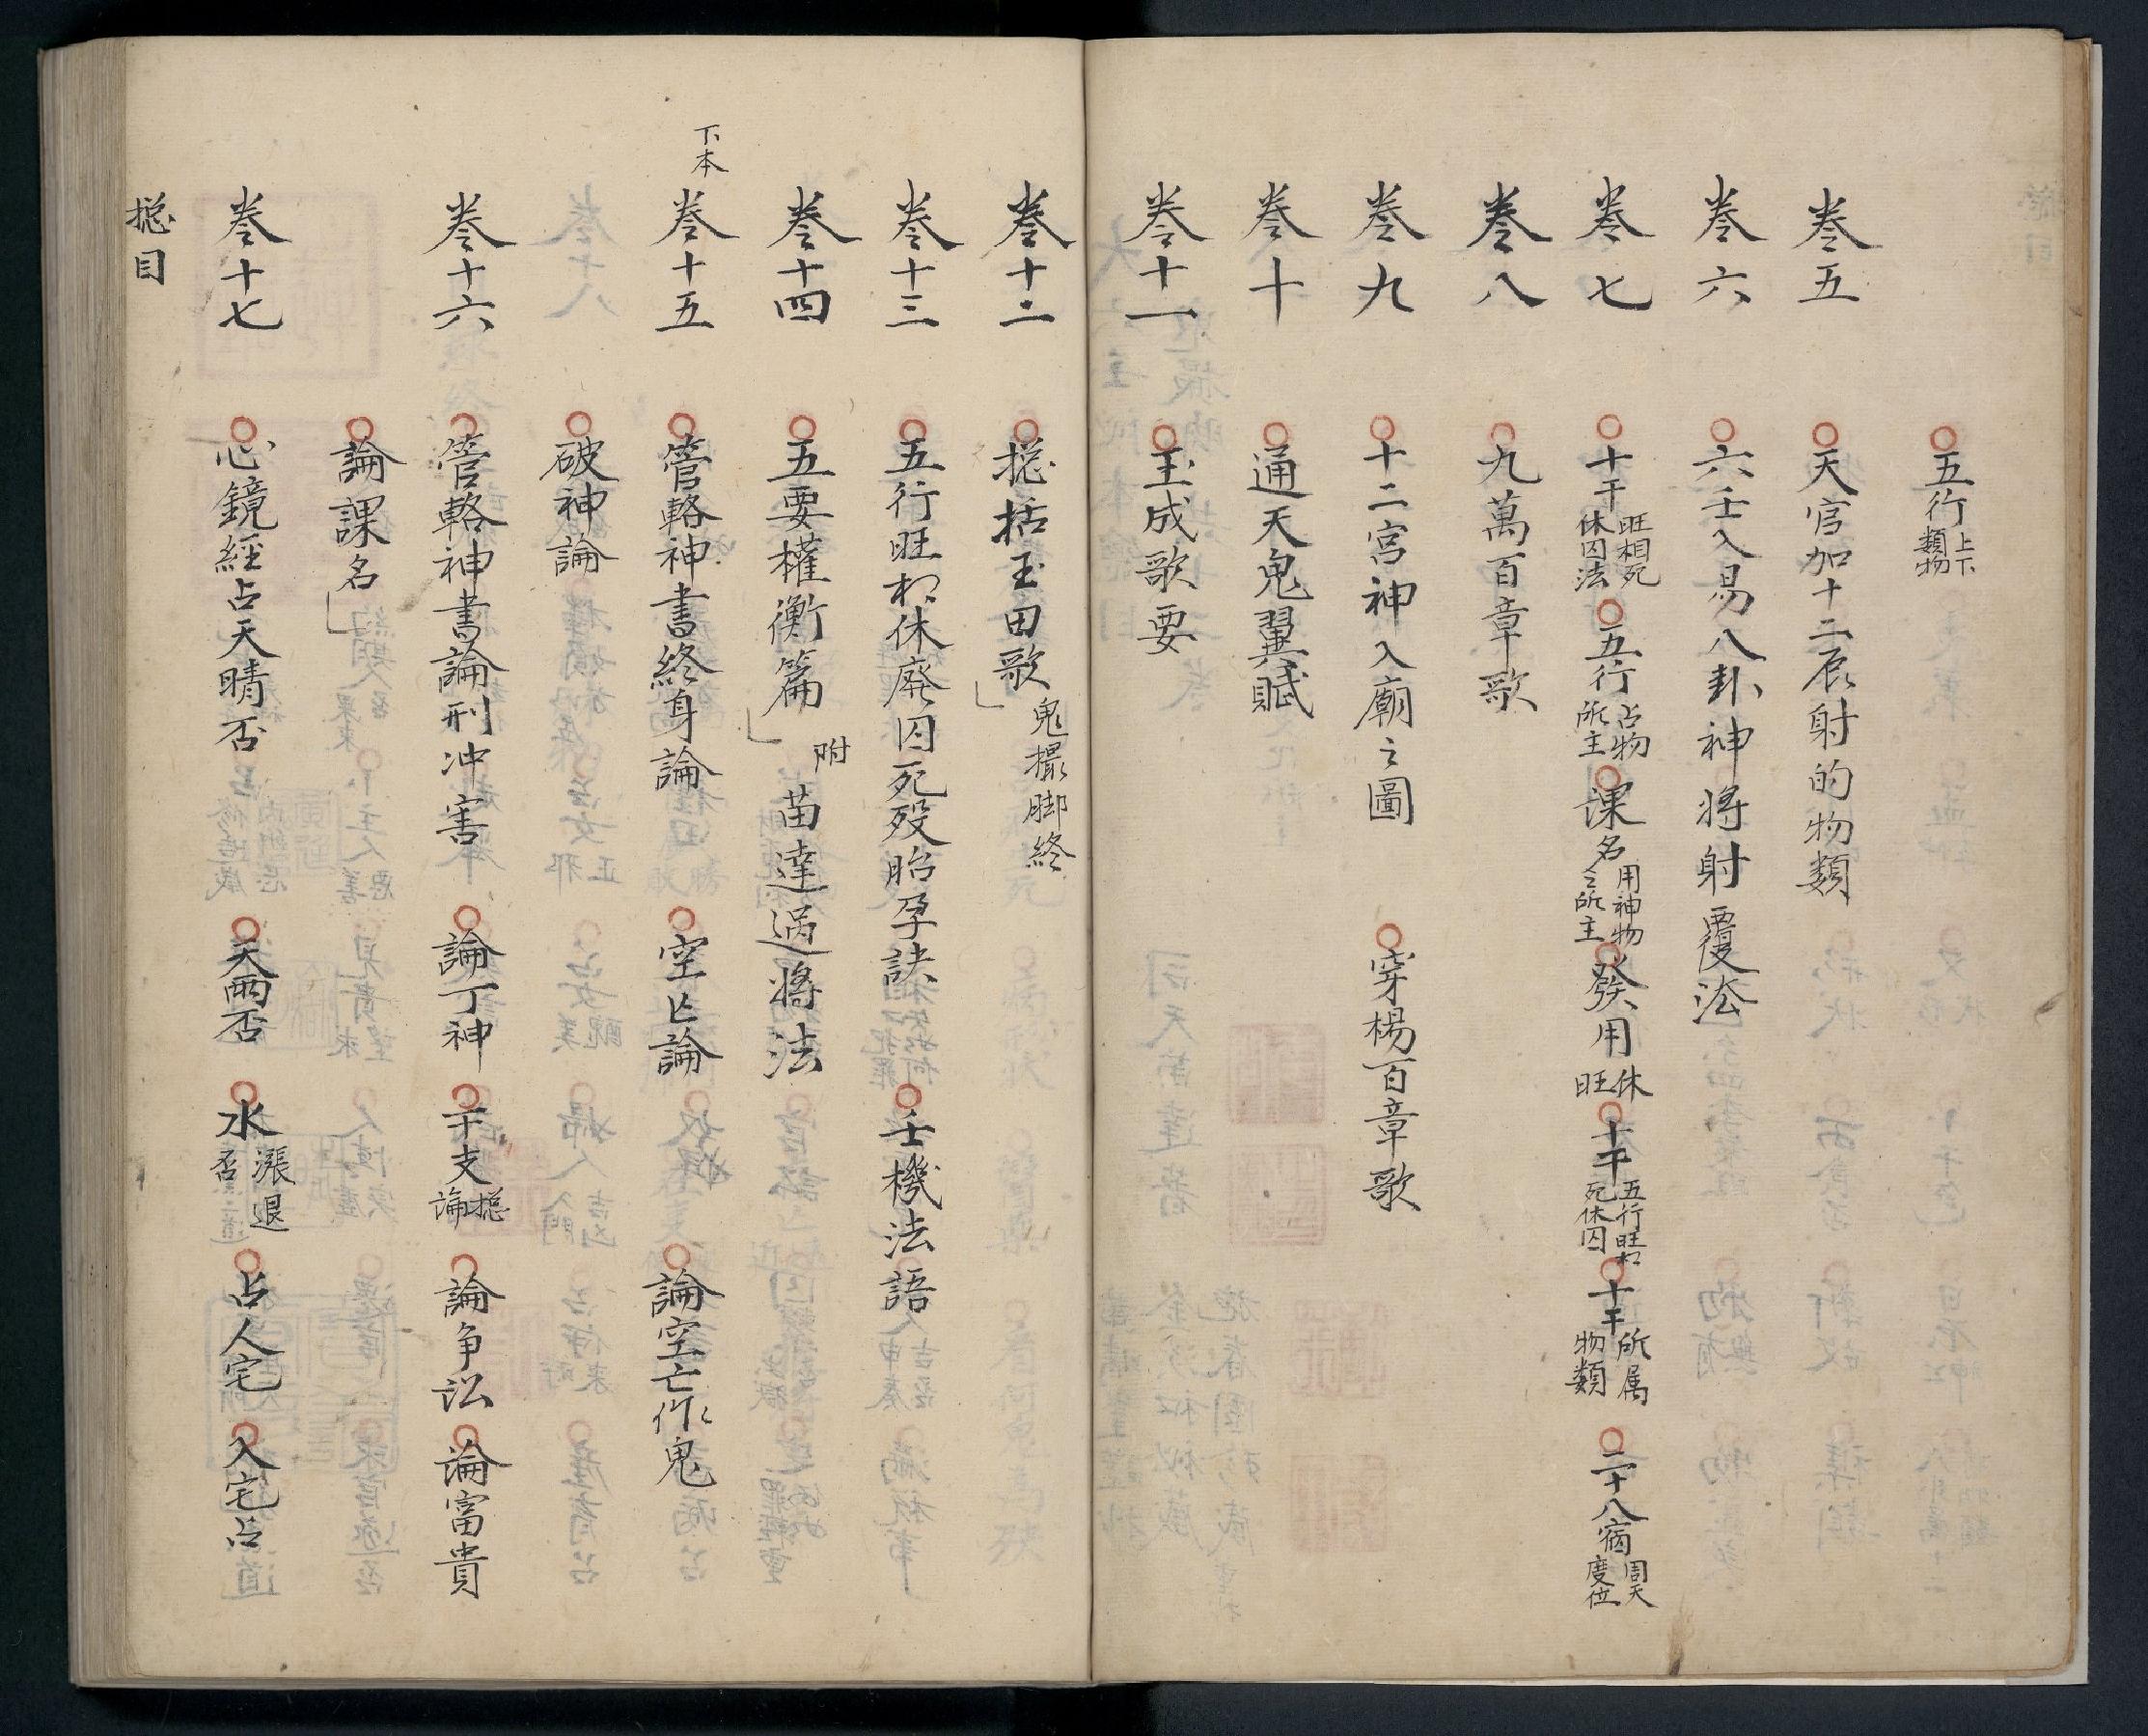 五行上下類物
卷五 天官加十二辰射的物類
卷六 六壬入易八卦神將射覆法
卷七 十干旺相死休囚法 五行占物所主 課名用神物之所主 發用休旺 十干五行旺相死休囚 十干所属物類 二十八宿周天度位
卷八 九萬百章歌
卷九 十二宮神入廟之圖 穿楊百章歌
卷十 通天鬼翼賦
卷十一 玉成歌要
卷十二 揔括玉田歌 鬼撮脚終
卷十三 五行旺相休廢囚死殁胎孕訣 壬機法語
卷十四 五要權衡篇 附 苗達過將法
下本 卷十五 管輅神書終身論 空亡論 論空亡作鬼
破神論
卷十六 管輅神書論刑冲害 論丁神 干支揔論 論争訟 論富貴
論課名
卷十七 心鏡經占天晴否 天雨否 水漲退否 占人宅 入宅占
揔目